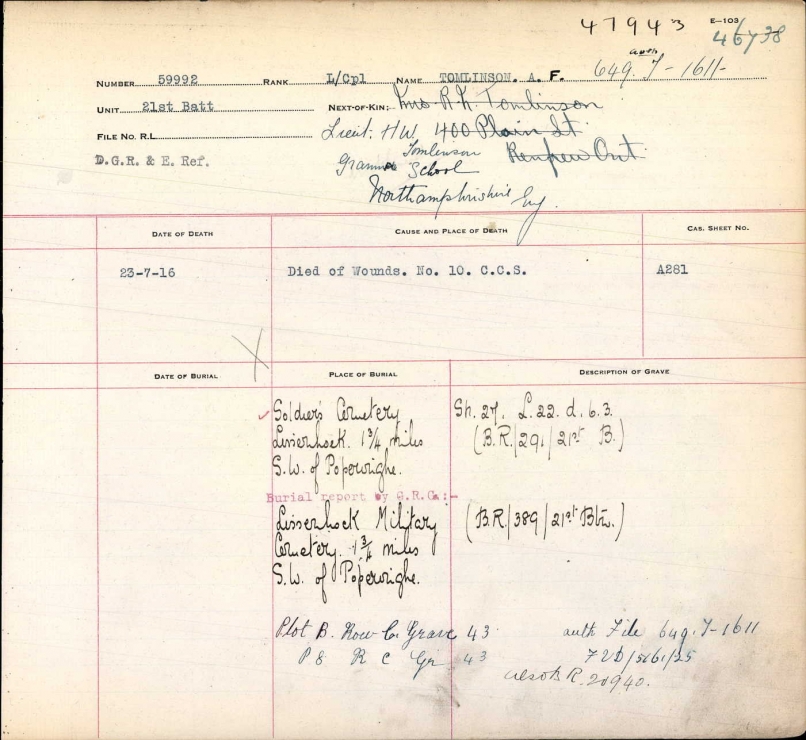 47943 E-103
46738
auth
649. T-1611-
NUMBER 59992 RANK L/Cpl NAME TOMLINSON. A. F.
UNIT 21st Batt NEXT-OF-KIN: Mrs R. N. Tomlinson
FILE NO. R.L. Lieut. H.W. 400 Plain St
D.G.R. & E. Ref. Tomlinson Renfrew Ont
Grammar School
Northamptonshire Eng.
DATE OF DEATH CAUSE AND PLACE OF DEATH CAS. SHEET NO.
23-7-16 Died of Wounds. No. 10. C.C.S. A281
DATE OF BURIAL PLACE OF BURIAL DESCRIPTION OF GRAVE
Soldier's Cemetery Sh. 27. L. 22. d. 6. 3.
Lissenhock. 1 3/4 miles (B.R./291/21st B.)
S.W. of Poperinghe.
Burial report by G.R.C.:-
Lissenhock Military (B.R./389/21st Btn.)
Cemetery. 1 3/4 miles
S.W. of Poperinghe.
Plot B. Row C. Grave 43 auth File 649. T-1611
P 8 R C Gr 43
also B R. 20940.